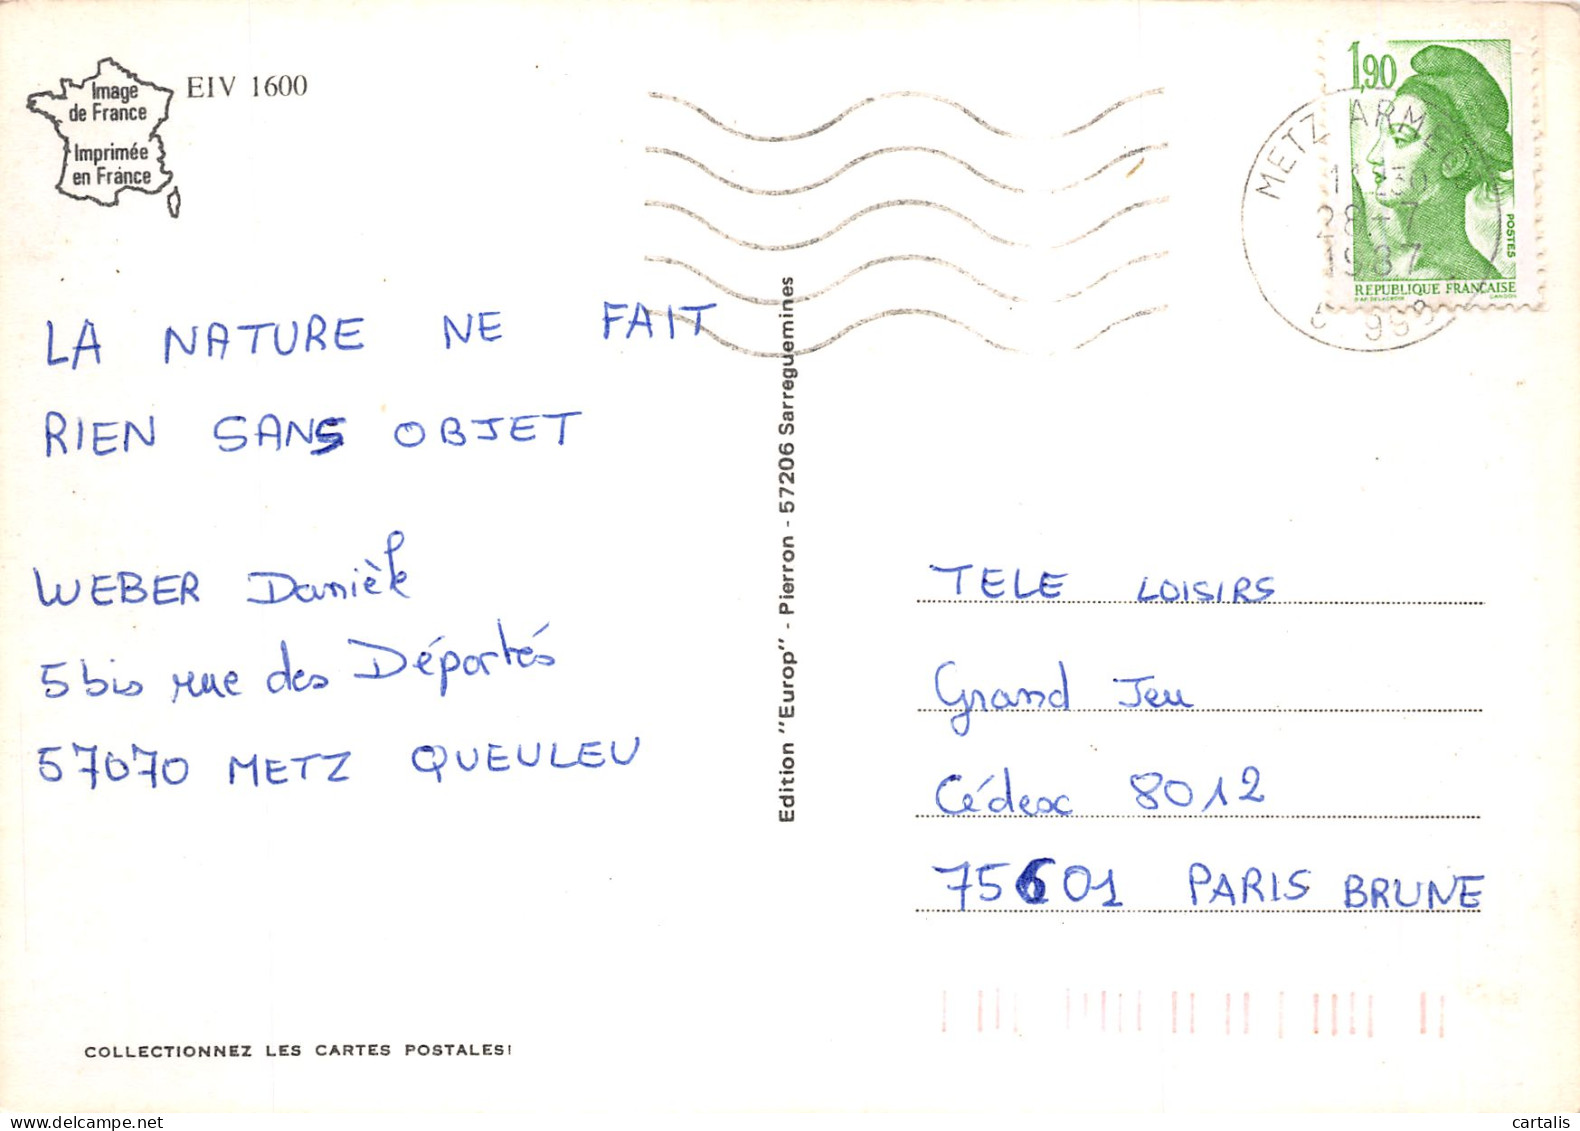 Image
de France
Imprimée
en France
EIV 1600
1,90
POSTES
REPUBLIQUE FRANÇAISE
METZ ARMÉES
28-7
1987
LA NATURE NE FAIT
RIEN SANS OBJET
WEBER Danièle
5 bis rue des Déportés
57070 METZ QUEULEU
Edition "Europ" - Pierron - 57206 Sarreguemines
TELE LOISIRS
Grand Jeu
Cédex 8012
75601 PARIS BRUNE
COLLECTIONNEZ LES CARTES POSTALES!
cartalis